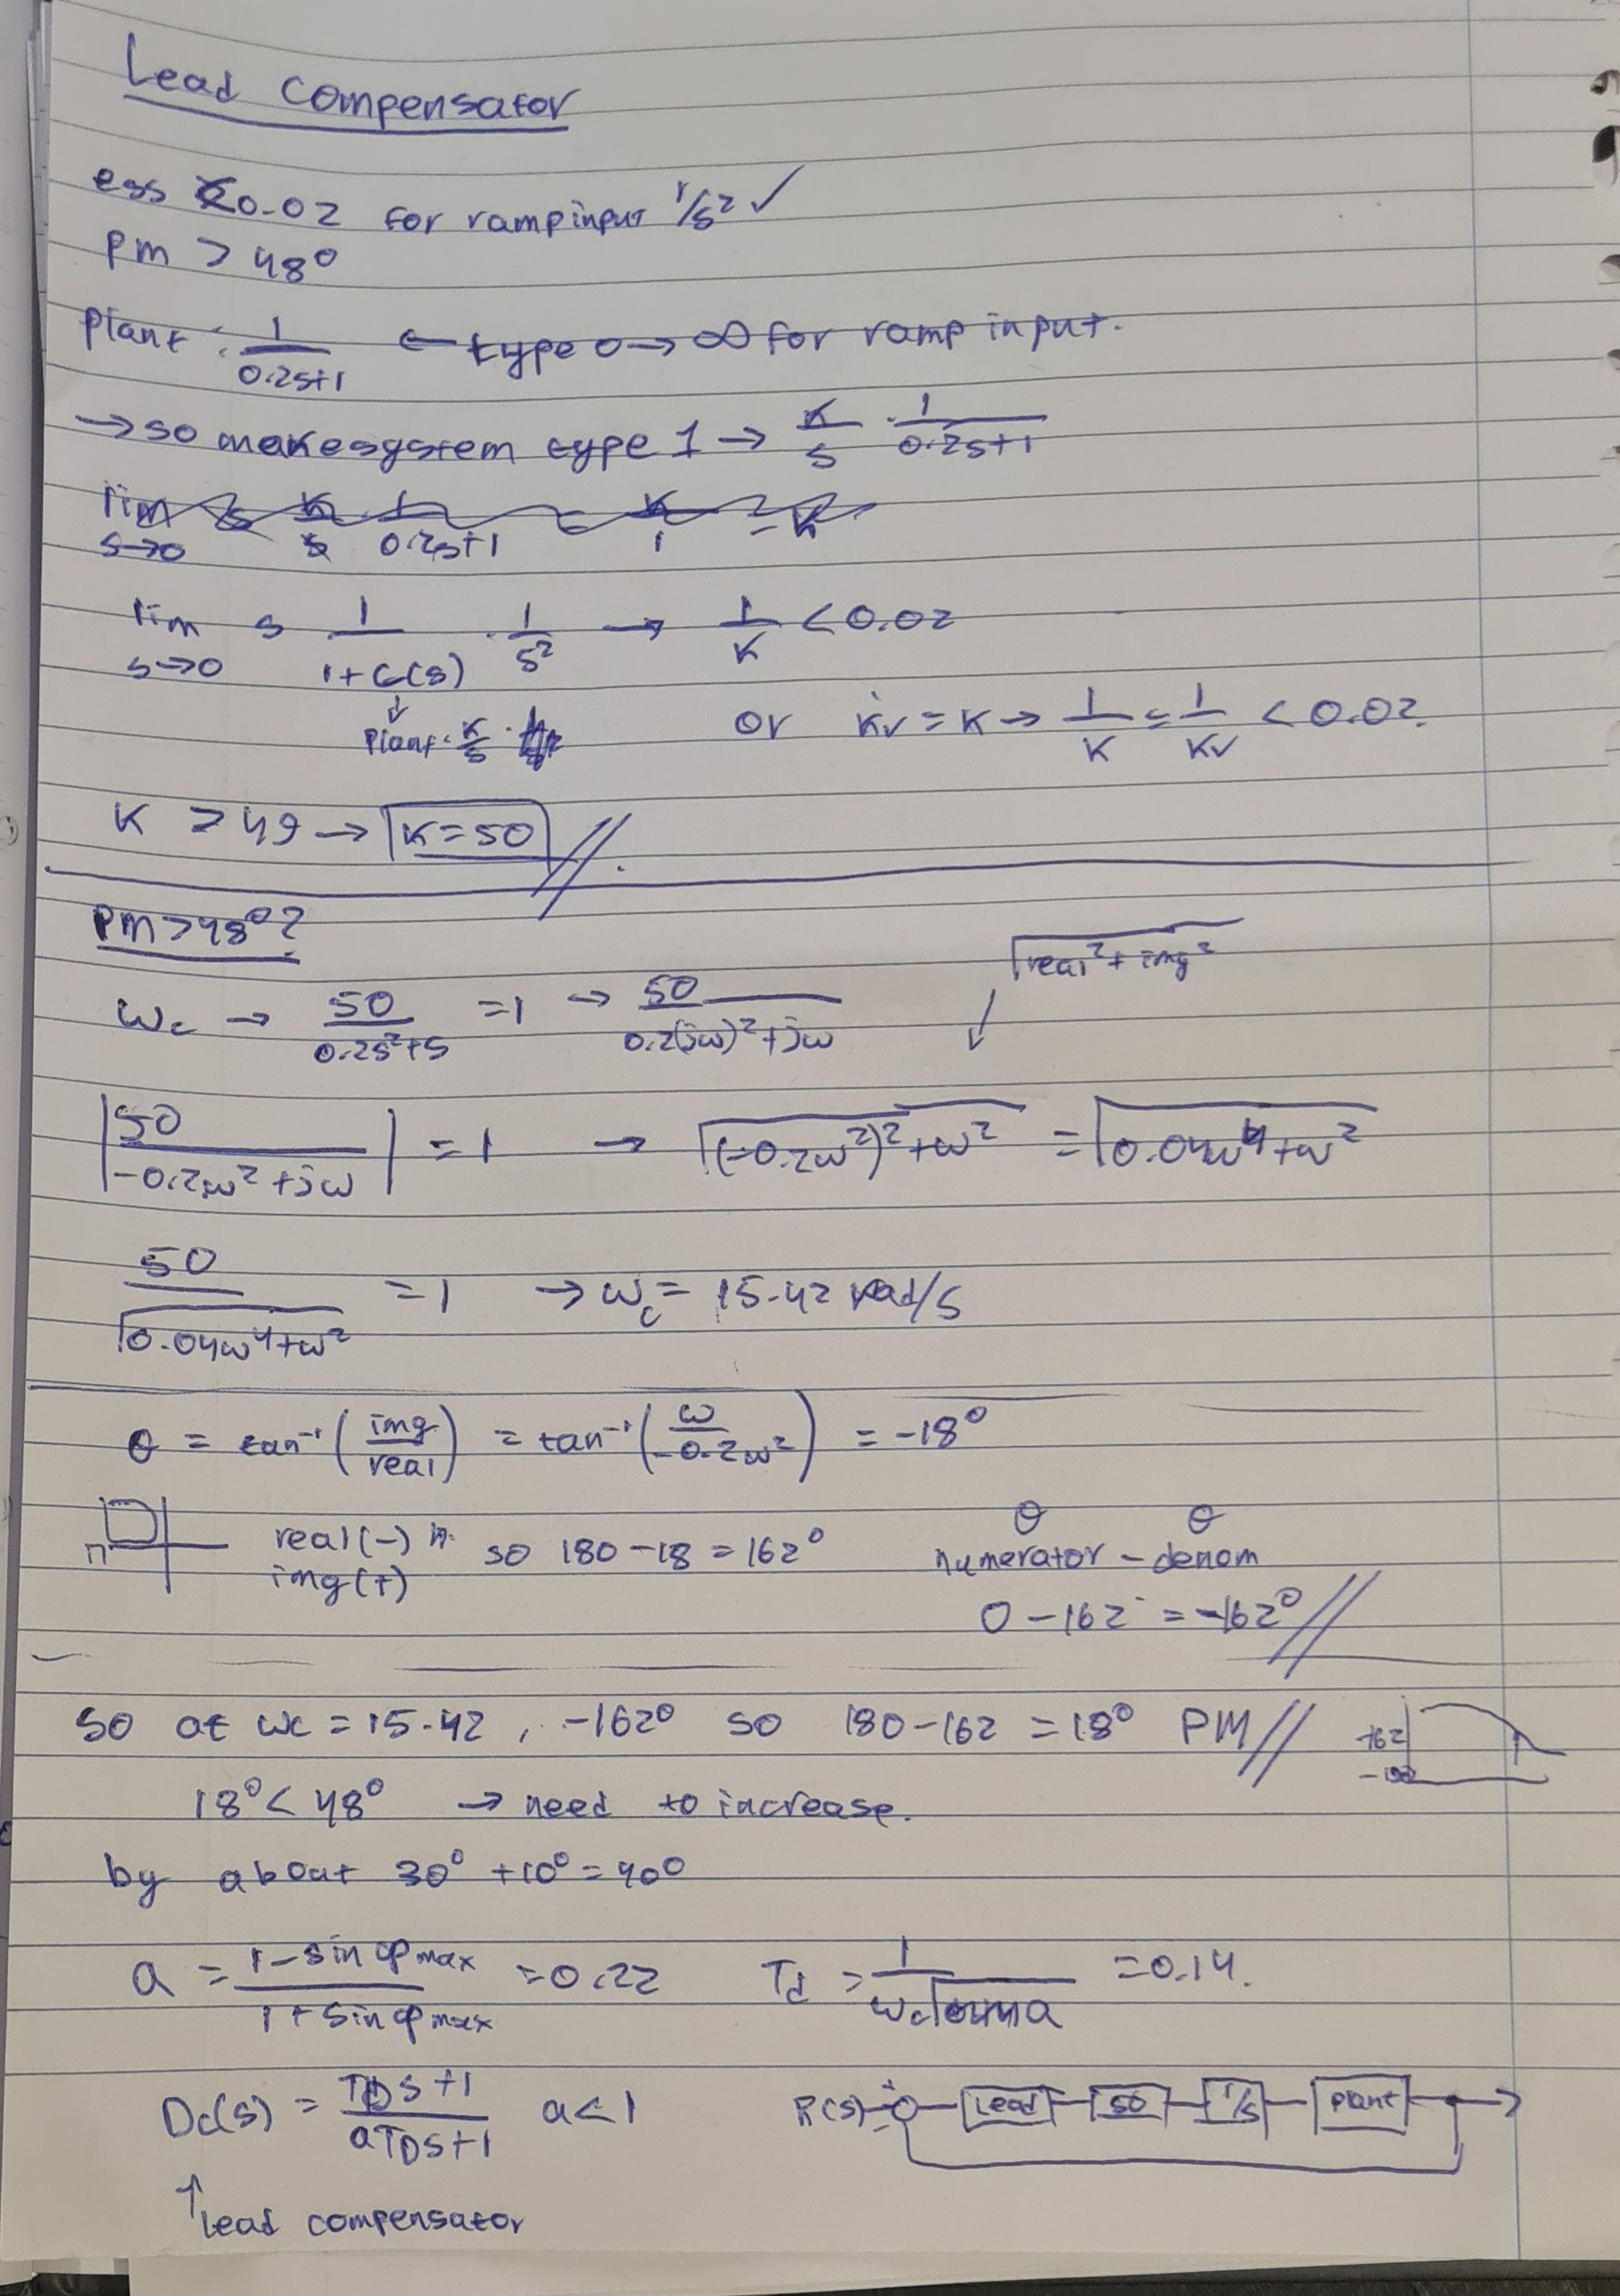 Lead Compensator
ess ≤0.02 for ramp input 1/s² ✓
PM > 48°
Plant : 1/(0.2s+1) ← type 0 → ∞ for ramp input.
→ so make system type 1 → K/s · 1/(0.2s+1)
lim s→0 s K/s 1/(0.2s+1) = K/1 = K
lim s→0 s 1/(1+G(s)) · 1/s² → 1/K < 0.02
↓
Plant · K/s · or Kv = K → 1/K = 1/Kv < 0.02.
K > 49 → K=50 //.
PM>48°?
√(real²+img²)
ωc → 50/(0.2s²+s) =1 → 50/(0.2(jω)²+jω) ↓
|50/(-0.2ω²+jω)| = 1 → √((-0.2ω²)²+ω²) = √(0.04ω⁴+ω²)
50/√(0.04ω⁴+ω²) = 1 → ωc = 15.42 rad/s
θ = tan⁻¹(img/real) = tan⁻¹(ω/-0.2ω²) = -18°
real(-) so 180-18 = 162° θ numerator - θ denom
img(+)
0 - 162 = -162° //
so at ωc = 15.42 , -162° so 180-162 = 18° PM // -162
-180
18° < 48° → need to increase.
by about 30° +10° = 40°
a = (1-sin φmax)/(1+sin φmax) = 0.22 Td = 1/(ωc√a) = 0.14.
Dc(s) = (TDs+1)/(aTDs+1) a<1 R(s) + - Lead 50 1/s Plant
↑
Lead compensator